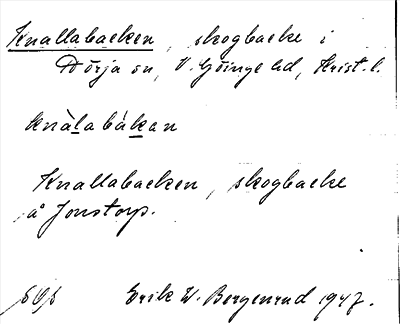 Knallabacken, skogbacke i
Dörja sn, V. Göinge hd, Krist. l.
knàlabákan
Knallabacken, skogbacke
å Jonstorp.
Erik W. Bergenrud 1947.